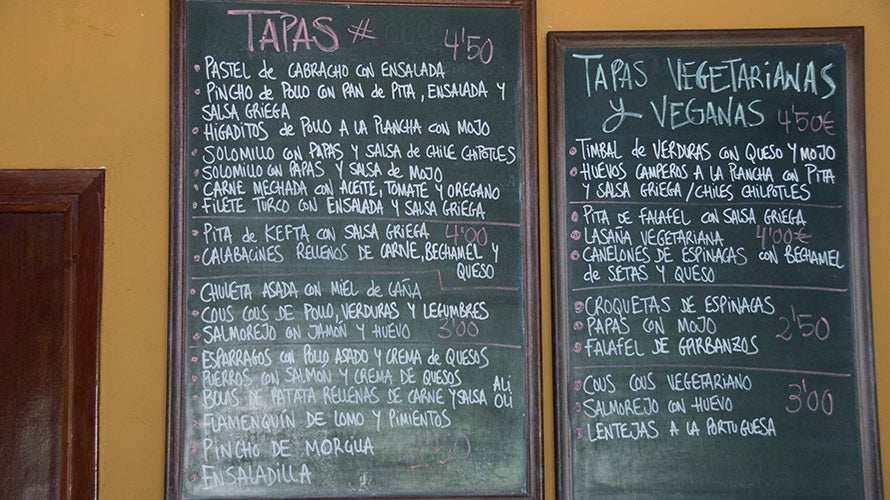 TAPAS #
4'50
PASTEL de CABRACHO CON ENSALADA
PINCHO de POLLO CON PAN de PITA, ENSALADA Y
SALSA GRIEGA
HIGADITOS de POLLO A LA PLANCHA CON MOJO
SOLOMILLO CON PAPAS Y SALSA de CHILE CHIPOTLES
SOLOMILLO CON PAPAS Y SALSA de MOJO
CARNE MECHADA CON ACEITE, TOMATE Y OREGANO
FILETE TURCO CON ENSALADA Y SALSA GRIEGA
PITA de KEFTA CON SALSA GRIEGA 4'00
CALABACINES RELLENOS DE CARNE, BECHAMEL Y
QUESO
CHULETA ASADA CON MIEL de CAÑA
COUS COUS DE POLLO, VERDURAS Y LEGUMBRES
SALMOREJO CON JAMÓN Y HUEVO 3'00
ESPARRAGOS CON POLLO ASADO Y CREMA DE QUESOS
PUERROS CON SALMON Y CREMA DE QUESOS
BOLAS DE PATATA RELLENAS DE CARNE Y SALSA ALI
OLI
FLAMENQUÍN DE LOMO Y PIMIENTOS
PINCHO DE MORCILLA
2'50
ENSALADILLA
TAPAS VEGETARIANAS
Y VEGANAS 4'50€
TIMBAL de VERDURAS CON QUESO Y MOJO
HUEVOS CAMPEROS A LA PLANCHA CON PITA
Y SALSA GRIEGA / CHILES CHILPOTLES
PITA DE FALAFEL CON SALSA GRIEGA
LASAÑA VEGETARIANA 4'00€
CANELONES DE ESPINACAS CON BECHAMEL
de SETAS Y QUESO
CROQUETAS DE ESPINACAS
PAPAS CON MOJO 2'50
FALAFEL DE GARBANZOS
COUS COUS VEGETARIANO
SALMOREJO CON HUEVO 3'00
LENTEJAS A LA PORTUGUESA